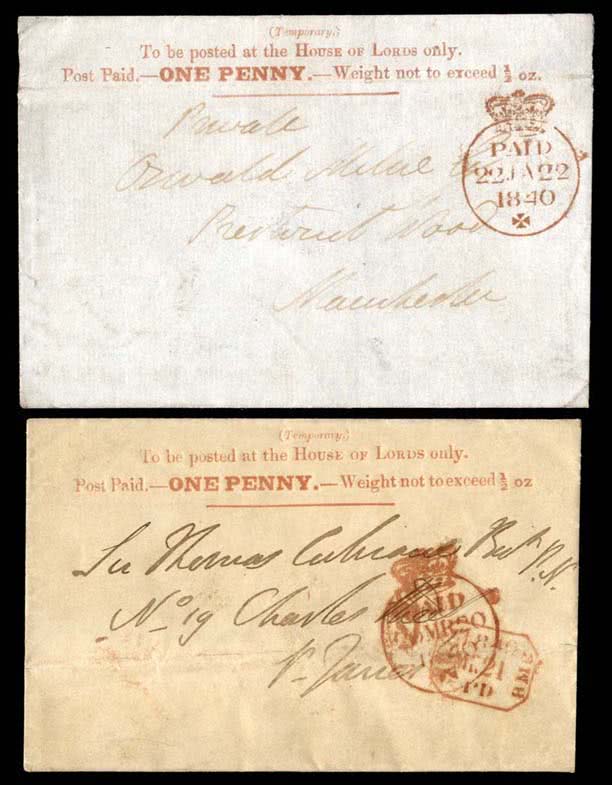 (Temporary.)
To be posted at the HOUSE OF LORDS only.
Post Paid.—ONE PENNY.—Weight not to exceed ½ oz.
PAID
22JA22
1840
Private
Oswald Milne
Prestwich Wood
Manchester
(Temporary.)
To be posted at the HOUSE OF LORDS only.
Post Paid.—ONE PENNY.—Weight not to exceed ½ oz
Sir Thomas Cochrane Bart R.N.
No 19 Charles Street
St James
PAID
21
PD